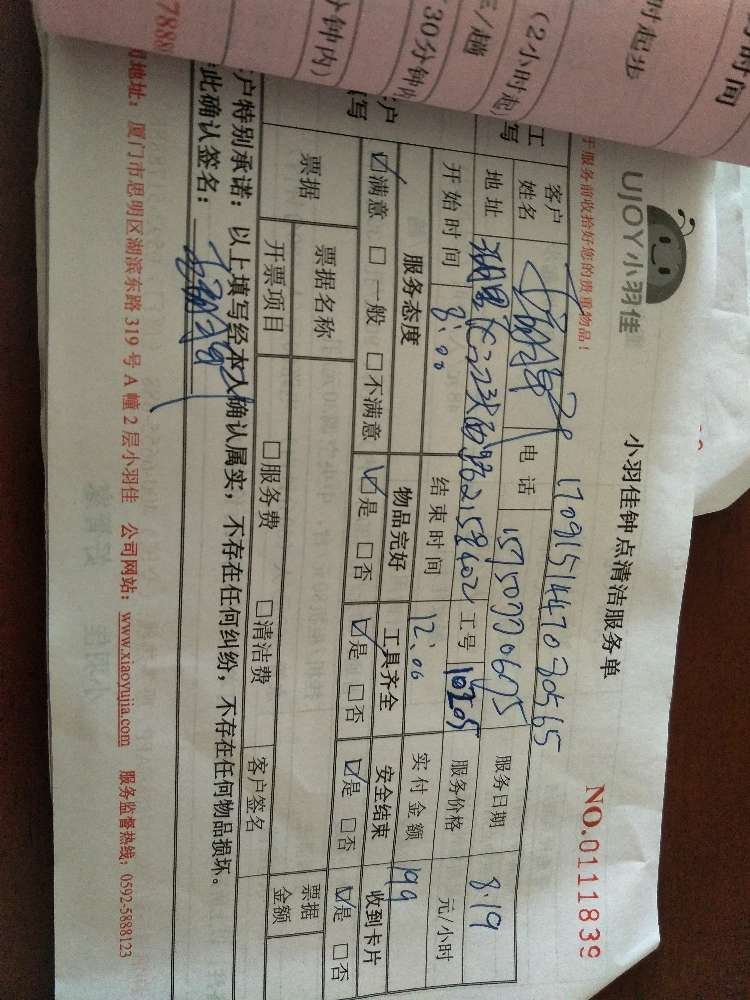 时间
时起步
(2小时起)
元/趟
30分钟内
分钟内)
7888
UJOY小羽佳
小羽佳钟点清洁服务单
NO.0111839
于服务前收拾好您的贵重物品!
1709151447030565
客户姓名
电话
15750770675
服务日期
8.19
地址
工号
10305
服务价格
元/小时
开始时间
8:00
结束时间
12:00
实付金额
199
服务态度
物品完好
工具齐全
安全结束
收到卡片
☑满意 □一般 □不满意
☑是 □否
☑是 □否
☑是 □否
☑是 □否
票据
票据名称
开票项目
□服务费
□清洁费
客户签名
票据金额
户特别承诺:以上填写经本人确认属实,不存在任何纠纷,不存在任何物品损坏。
此确认签名:
地址:厦门市思明区湖滨东路 319 号 A 幢 2 层小羽佳 公司网站:www.xiaoyujia.com 服务监督热线:0592-5888123